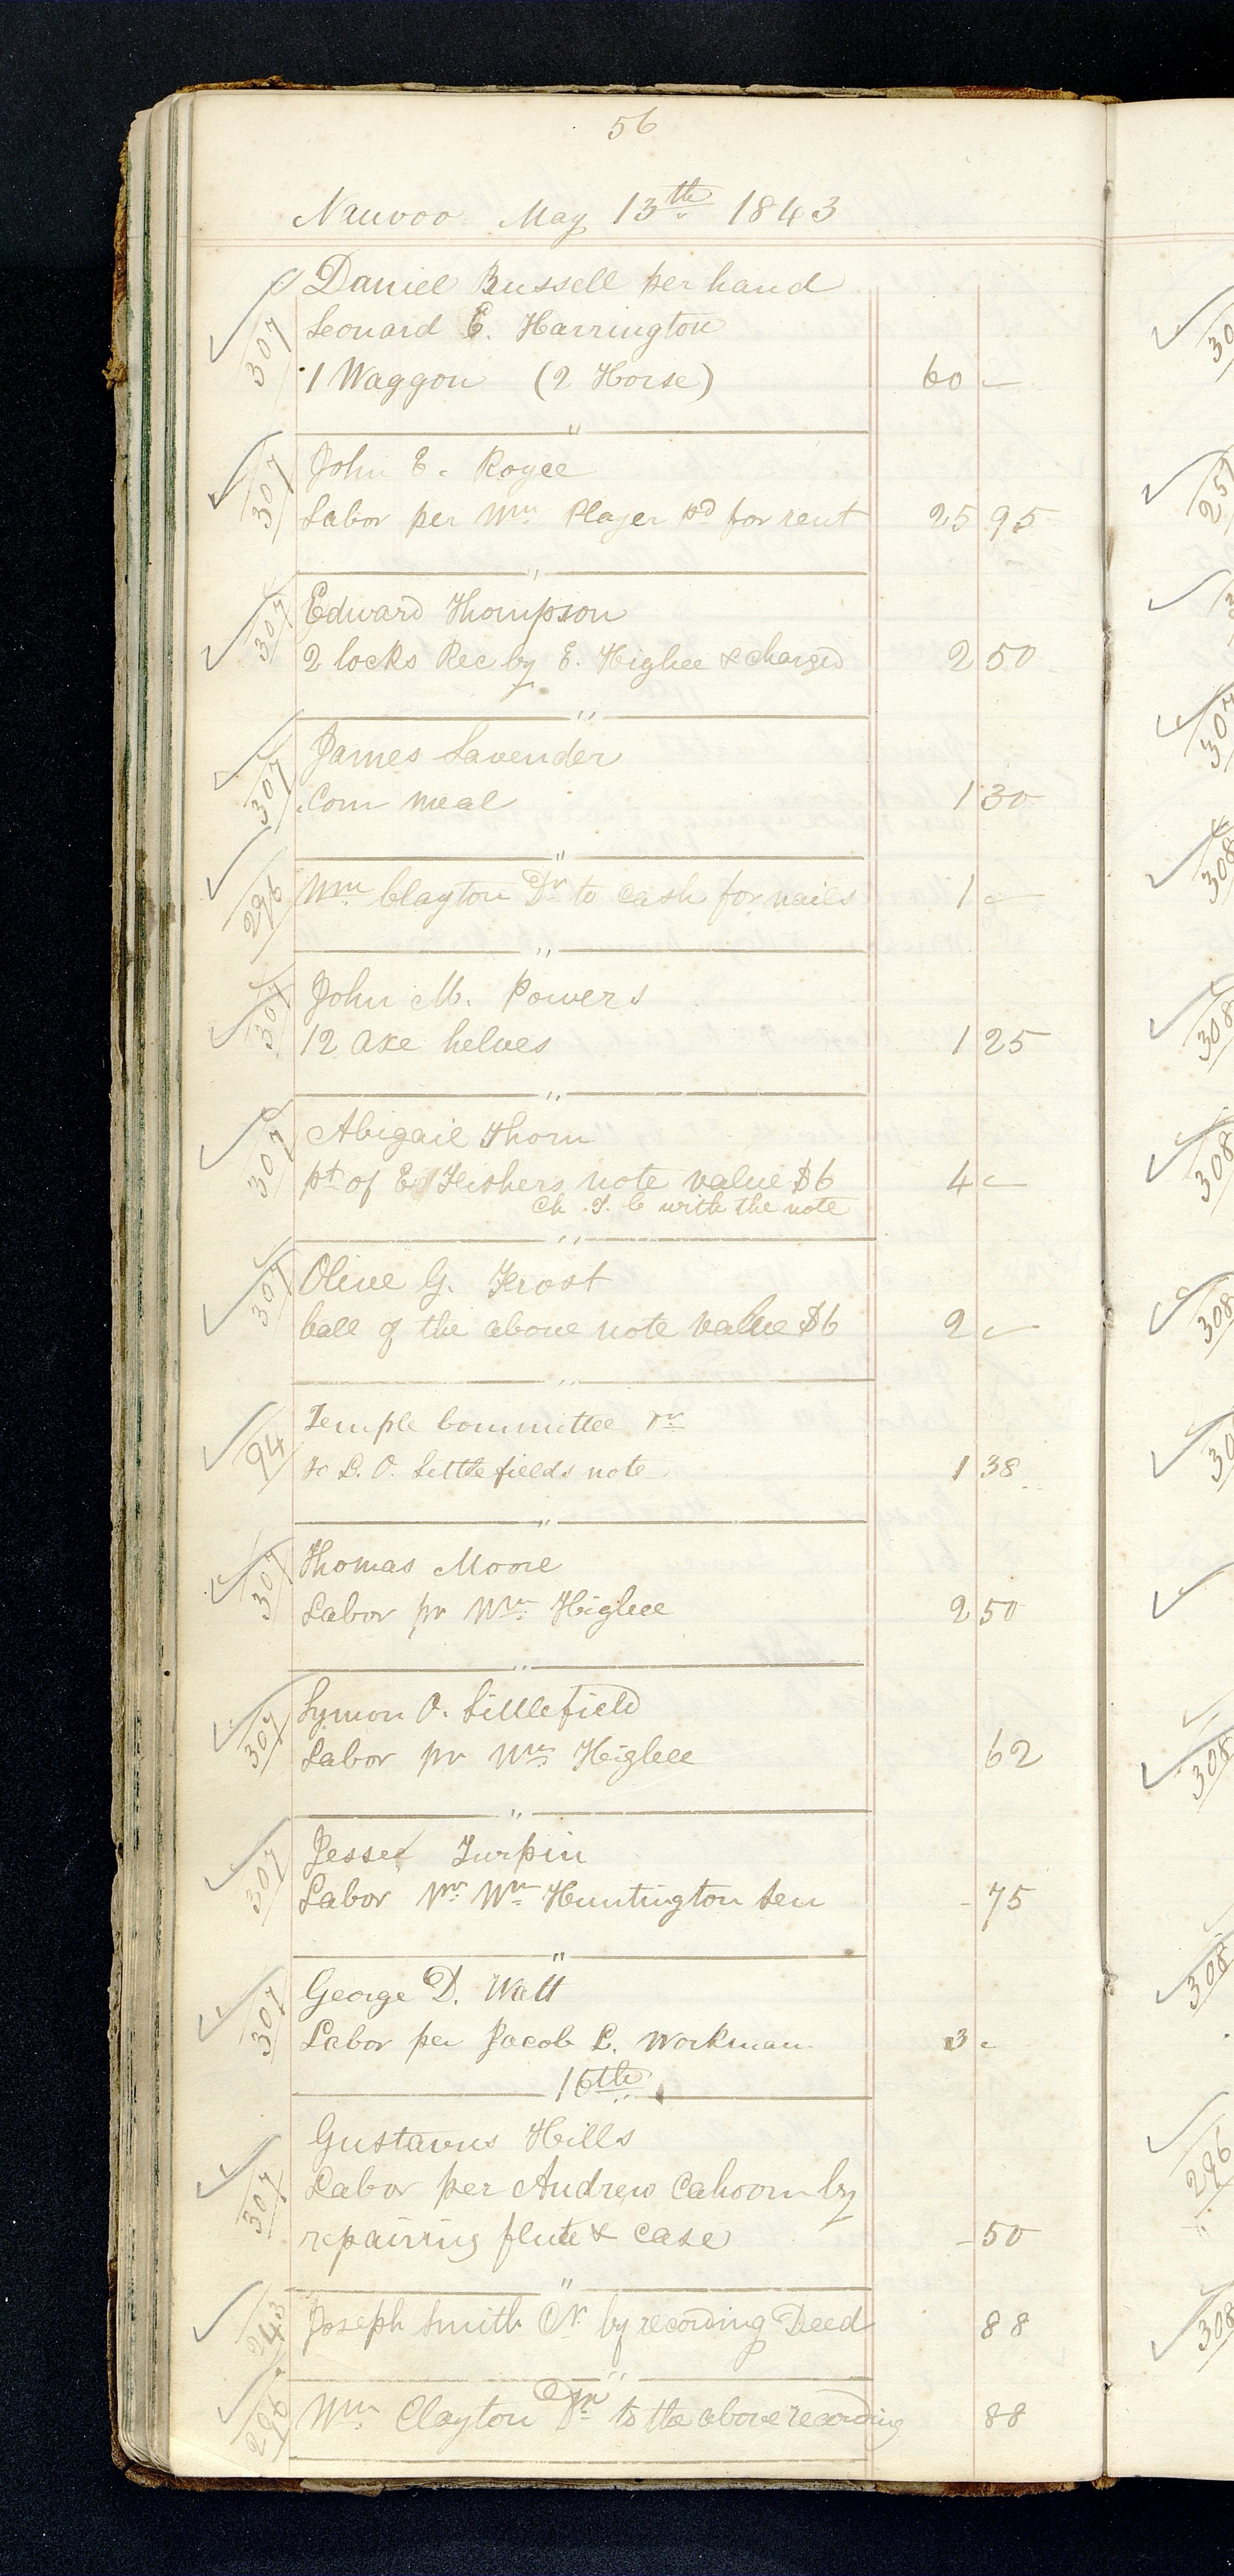 56
Nauvoo May 13th 1843
Daniel Russell per hand
307 Leonard E. Harrington
1 Waggon (2 Horse) 60 -
"
307 John E. Royce
Labor per Wm Player pd for rent 25 95
"
307 Edward Thompson
2 locks Rec by E. Higbee & charged 2 50
"
James Lavender
307 Corn meal 1 30
"
296 Wm Clayton Dr to Cash for nails 1 -
"
307 John M. Powers
12 axe helves 1 25
"
307 Abigail Thorn
pt of E Fishers note value $6 4 -
Ch. T. C with the note
"
307 Olive G. Frost
ball of the above note value $6 2 -
"
94 Temple Committee Dr
to L. O. Littlefields note 1 38
"
307 Thomas Moore
Labor pr Wm Higbee 2 50
"
307 Lymon O. Littlefield
Labor pr Wm Higbee 62
"
307 Jesse Turpin
Labor pr Wm Huntington Sen - 75
"
307 George D. Watt
Labor per Jacob L. Workman 3 -
16th
Gustavus Hills
307 Labor per Andrew Cahoon by
repairing flute & case - 50
"
243 Joseph Smith Cr by recording Deed 88
"
296 Wm Clayton Dr to the above recording 88